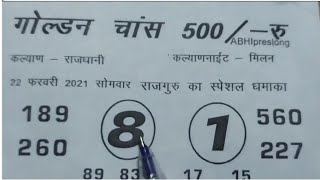 गोल्डन चांस 500/-रु
ABHIpreslong
कल्याण - राजधानी कल्याणनाईट - मिलन
22 फरवरी 2021 सोमवार राजगुरु का स्पेशल धमाका
189 8 1 560
260 227
89 83 17 15